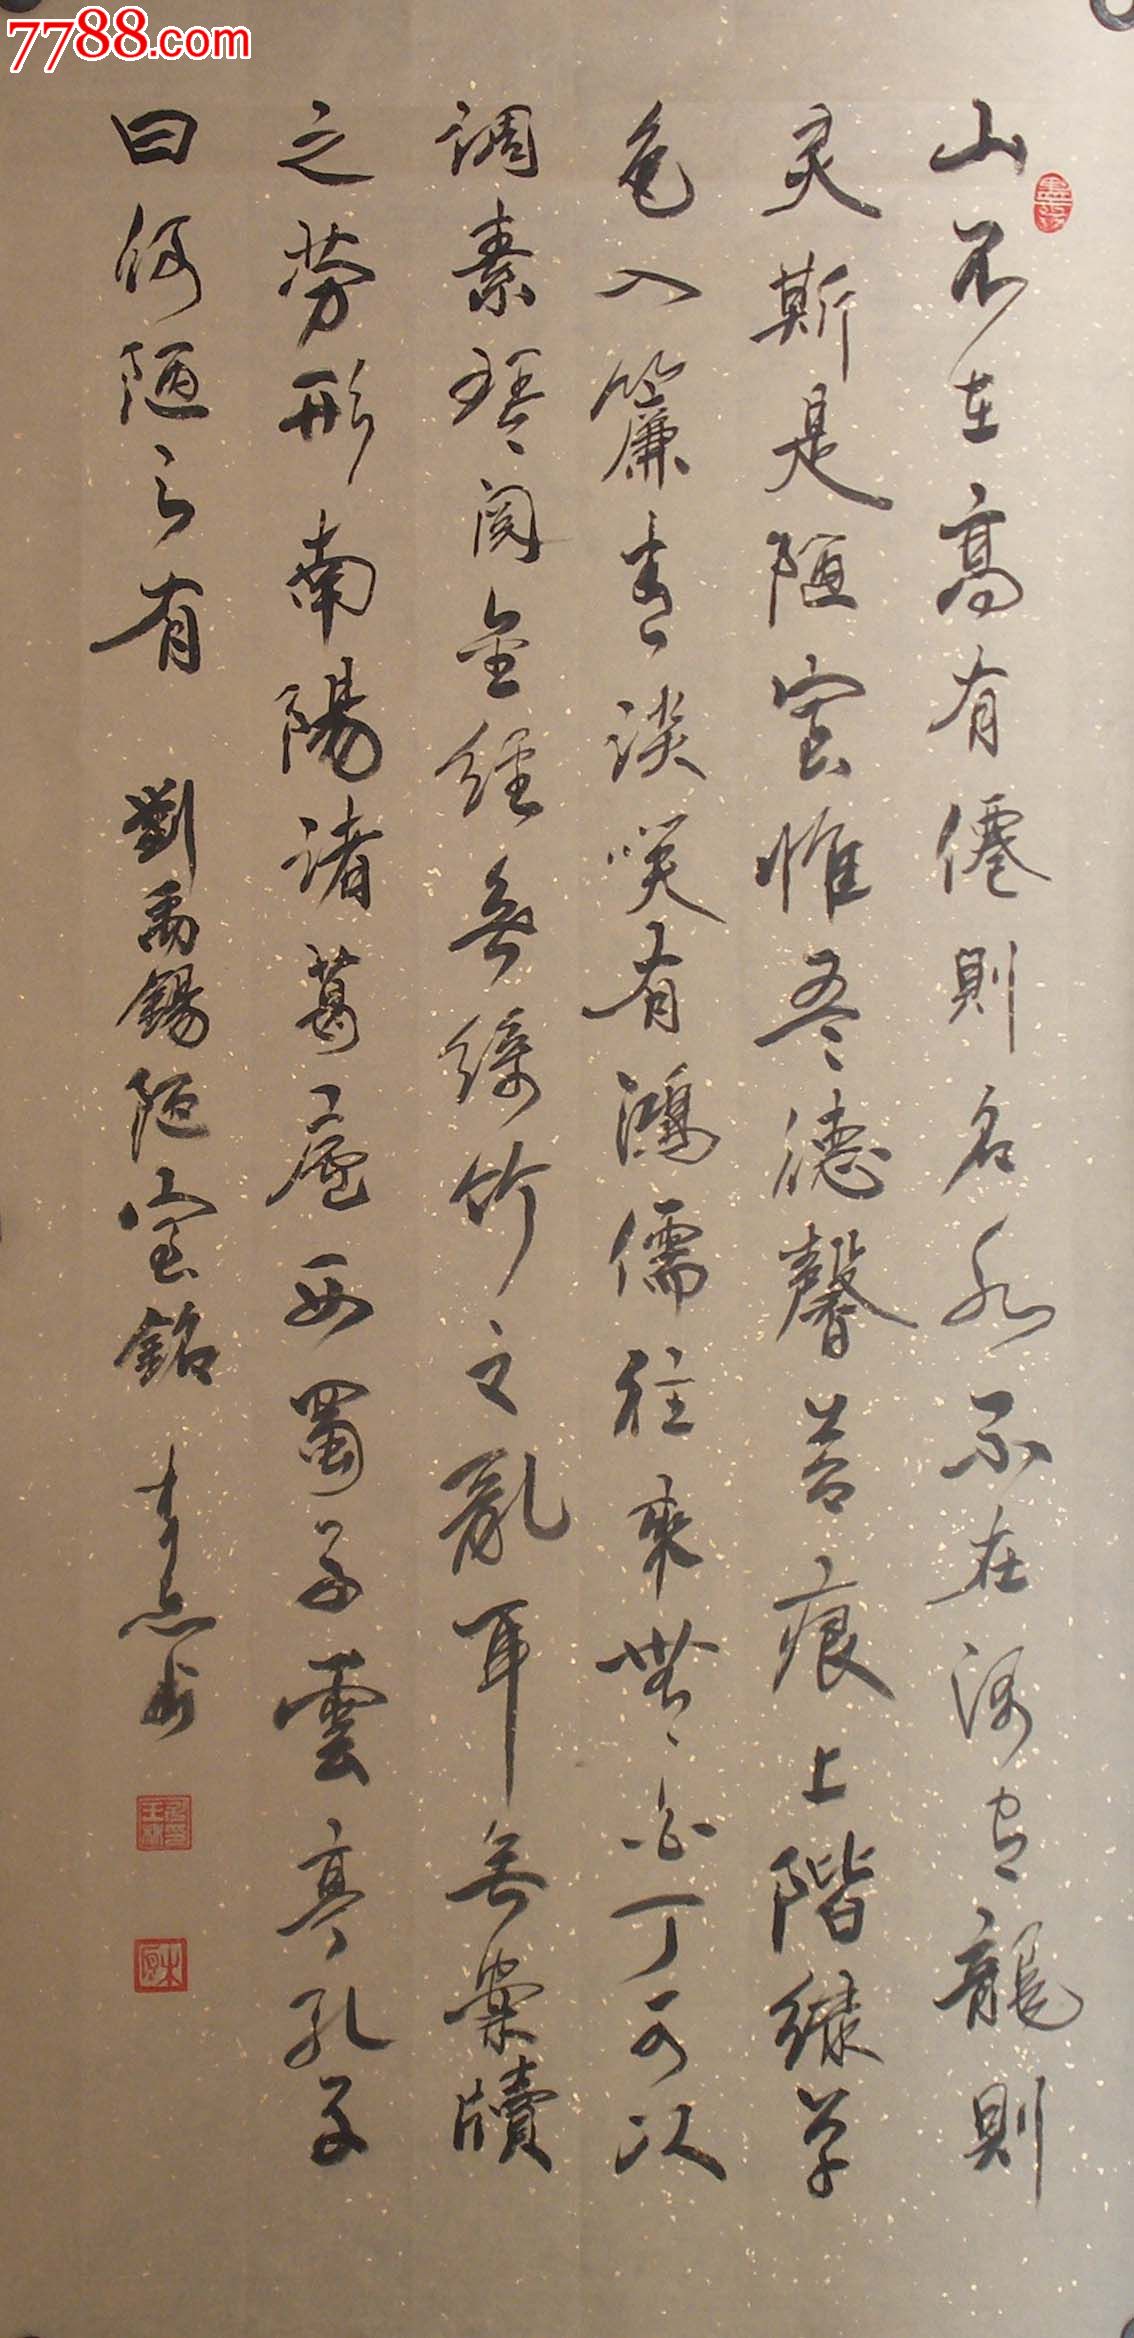 7788.com
山不在高有僊則名水不在深有龍則
灵斯是陋室惟吾德馨苔痕上階綠草
色入簾青談笑有鴻儒往來無白丁可以
調素琴閱金經無絲竹之亂耳無案牘
之勞形南陽諸葛廬西蜀子雲亭孔子
曰何陋之有 劉禹錫陋室銘